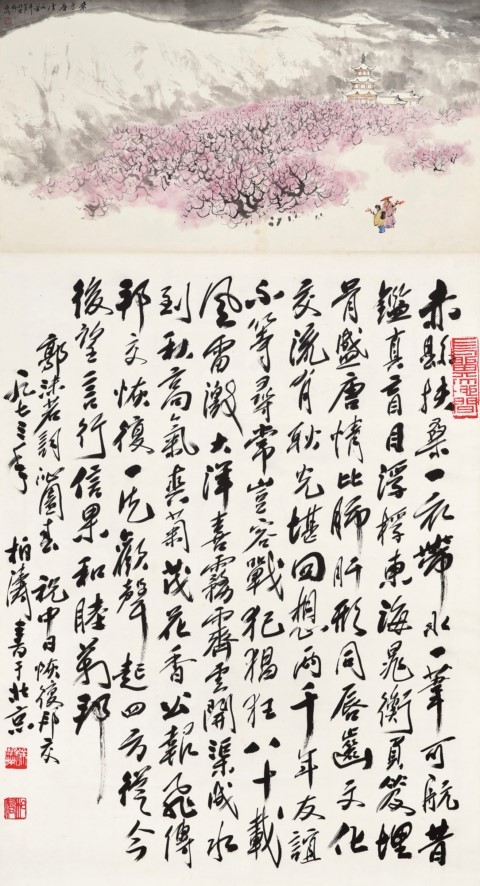 赤縣扶桑一衣帶水一葦可航昔
鑑真盲目浮桴東海晁衡負笈埋
骨盛唐情比肺肝形同唇齒文化
交流有耿光堪回想兩千年友誼
不等尋常豈容戰犯猖狂八十載
風雷激大洋喜霧霽雲開渠成水
到秋高氣爽菊茂花香公報飛傳
邦交恢復一片歡聲起四方從今
後望言行信果和睦萬邦
郭沫若詞沁園春 祝中日恢復邦交
一九七三年 柏濤書于北京